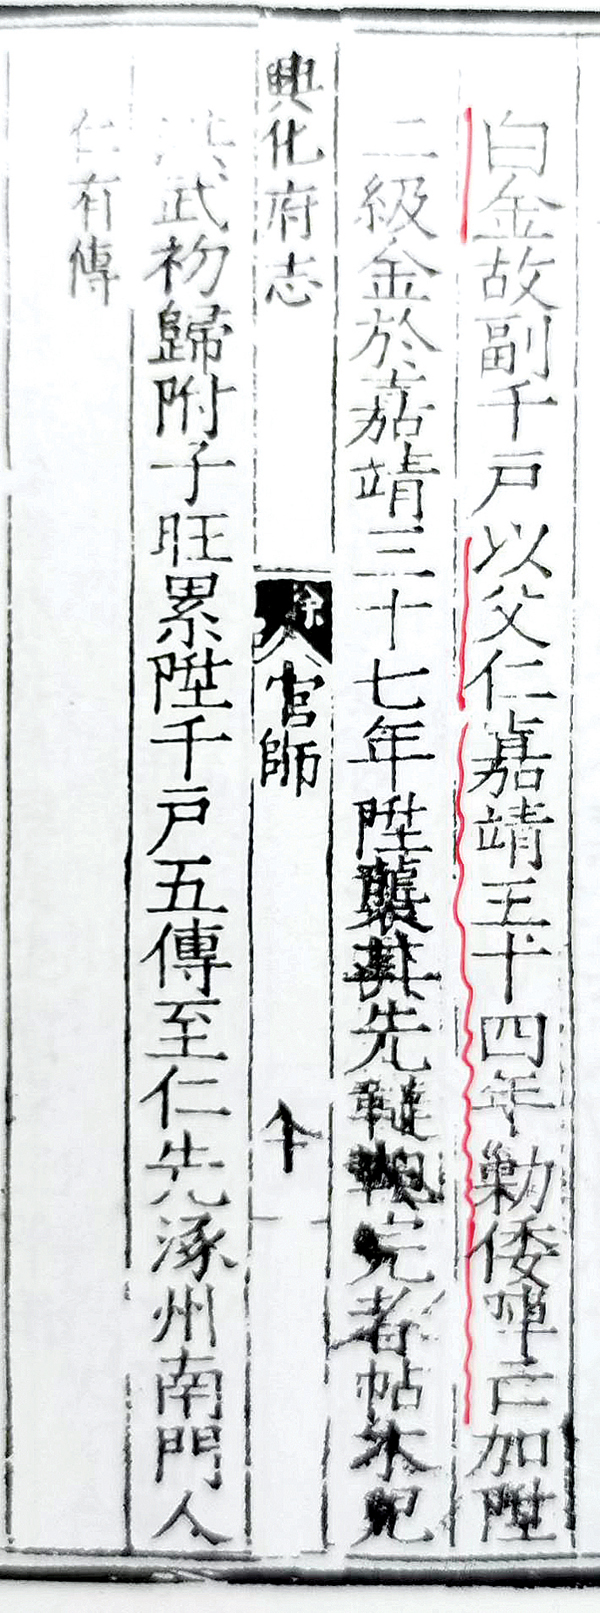 白金故副千戶以父仁嘉靖三十四年勦倭陣亡加陞
二級金於嘉靖三十七年陞襲其先韃靼完者帖木兒
興化府志
官師
洪武初歸附子旺累陞千戶五傳至仁先涿州南門人
仁有傳